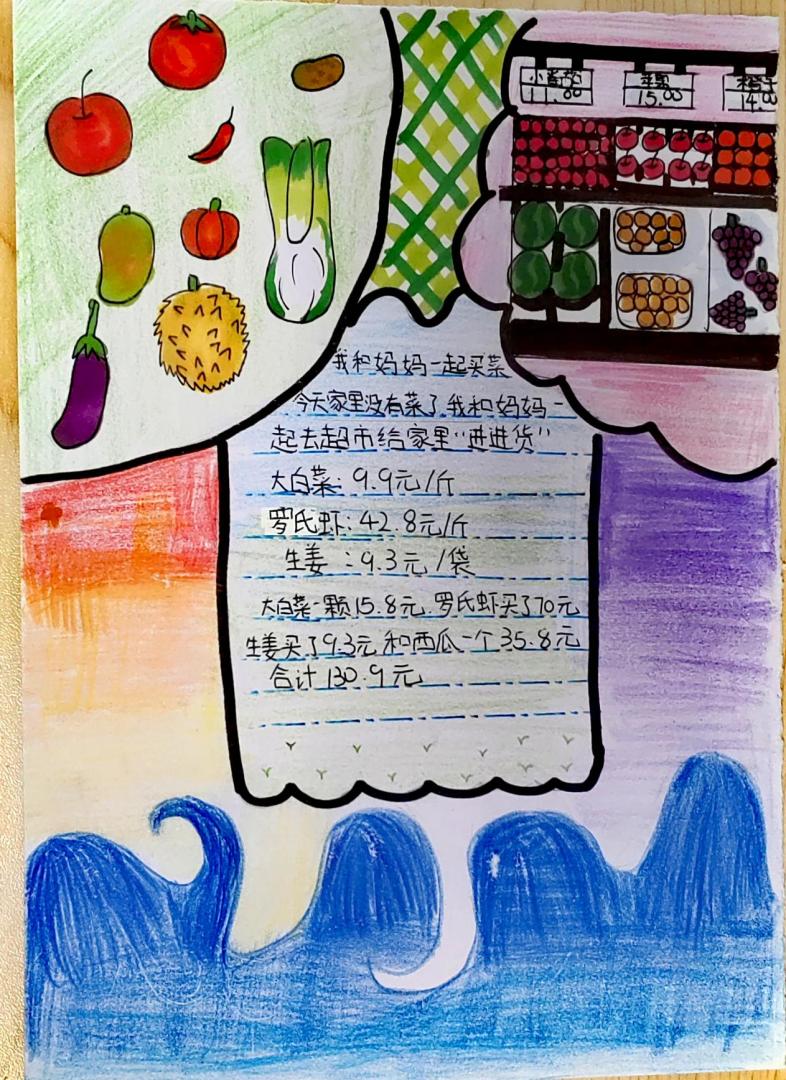 小番茄
11.00
苹果
15.00
14.00
我和妈妈一起买菜
今天家里没有菜了,我和妈妈一
起去超市给家里“进进货”
大白菜:9.9元/斤
罗氏虾:42.8元/斤
生姜:9.3元/袋
大白菜一颗15.8元.罗氏虾买了70元
生姜买了9.3元和西瓜一个35.8元
合计130.9元